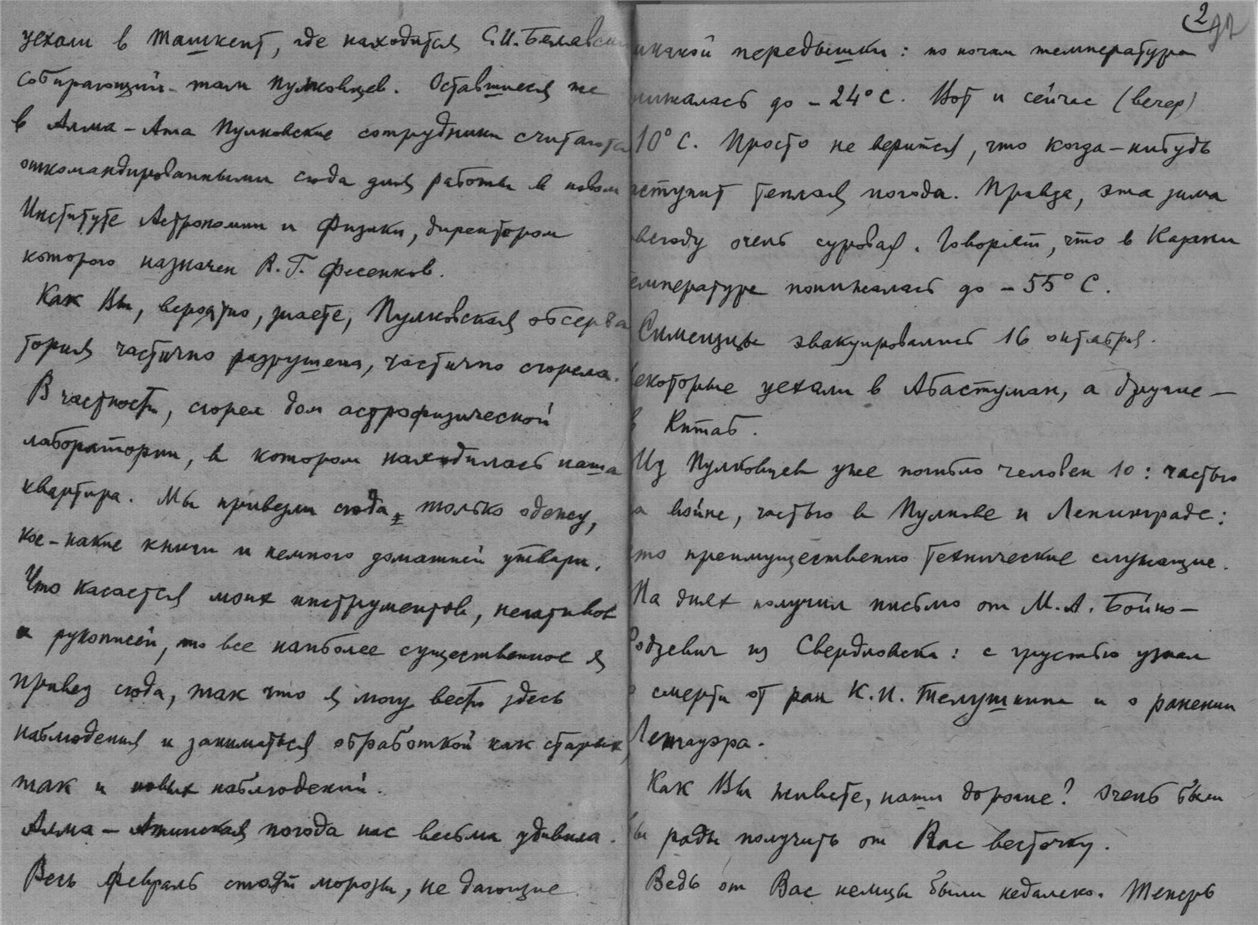 уехали в Ташкент, где находится С.И. Белявский
собирающий там пулковцев. Оставшиеся же
в Алма-Ата Пулковские сотрудники считаются
откомандированными сюда для работы в новом
Институте Астрономии и Физики, директором
которого назначен В.Г. Фесенков.
Как Вы, вероятно, знаете, Пулковская обсерва
тория частично разрушена, частично сгорела.
В частности, сгорел дом астрофизической
лаборатории, в котором находилась наша
квартира. Мы привезли сюда только одежу,
кое-какие книги и немного домашней утвари.
Что касается моих инструментов, негативов
и рукописей, то все наиболее существенное я
привез сюда, так что я могу вести здесь
наблюдения и заниматься обработкой как старых,
так и новых наблюдений.
Алма-Атинская погода нас весьма удивила.
Весь февраль стоят морозы, не дающие
2
никакой передышки: по ночам температура
нижалась до -24°С. Вот и сейчас (вечер)
10°С. Просто не верится, что когда-нибудь
наступит теплая погода. Правда, эта зима
всюду очень суровая. Говорят, что в Казани
температура понижалась до -55°С.
Симеизцы эвакуировались 16 октября.
Некоторые уехали в Абастуман, а другие -
в Китаб.
Из Пулковцев уже погибло человек 10: частью
на войне, частью в Пулкове и Ленинграде:
это преимущественно технические служащие.
На днях получил письмо от М.А. Бойно-
Родзевич из Свердловска: с грустью узнал
о смерти от ран К.И. Телушкина и о ранении
Как Вы живете, наши дорогие? Очень были
бы рады получить от Вас весточку.
Ведь от Вас немцы были недалеко. Теперь